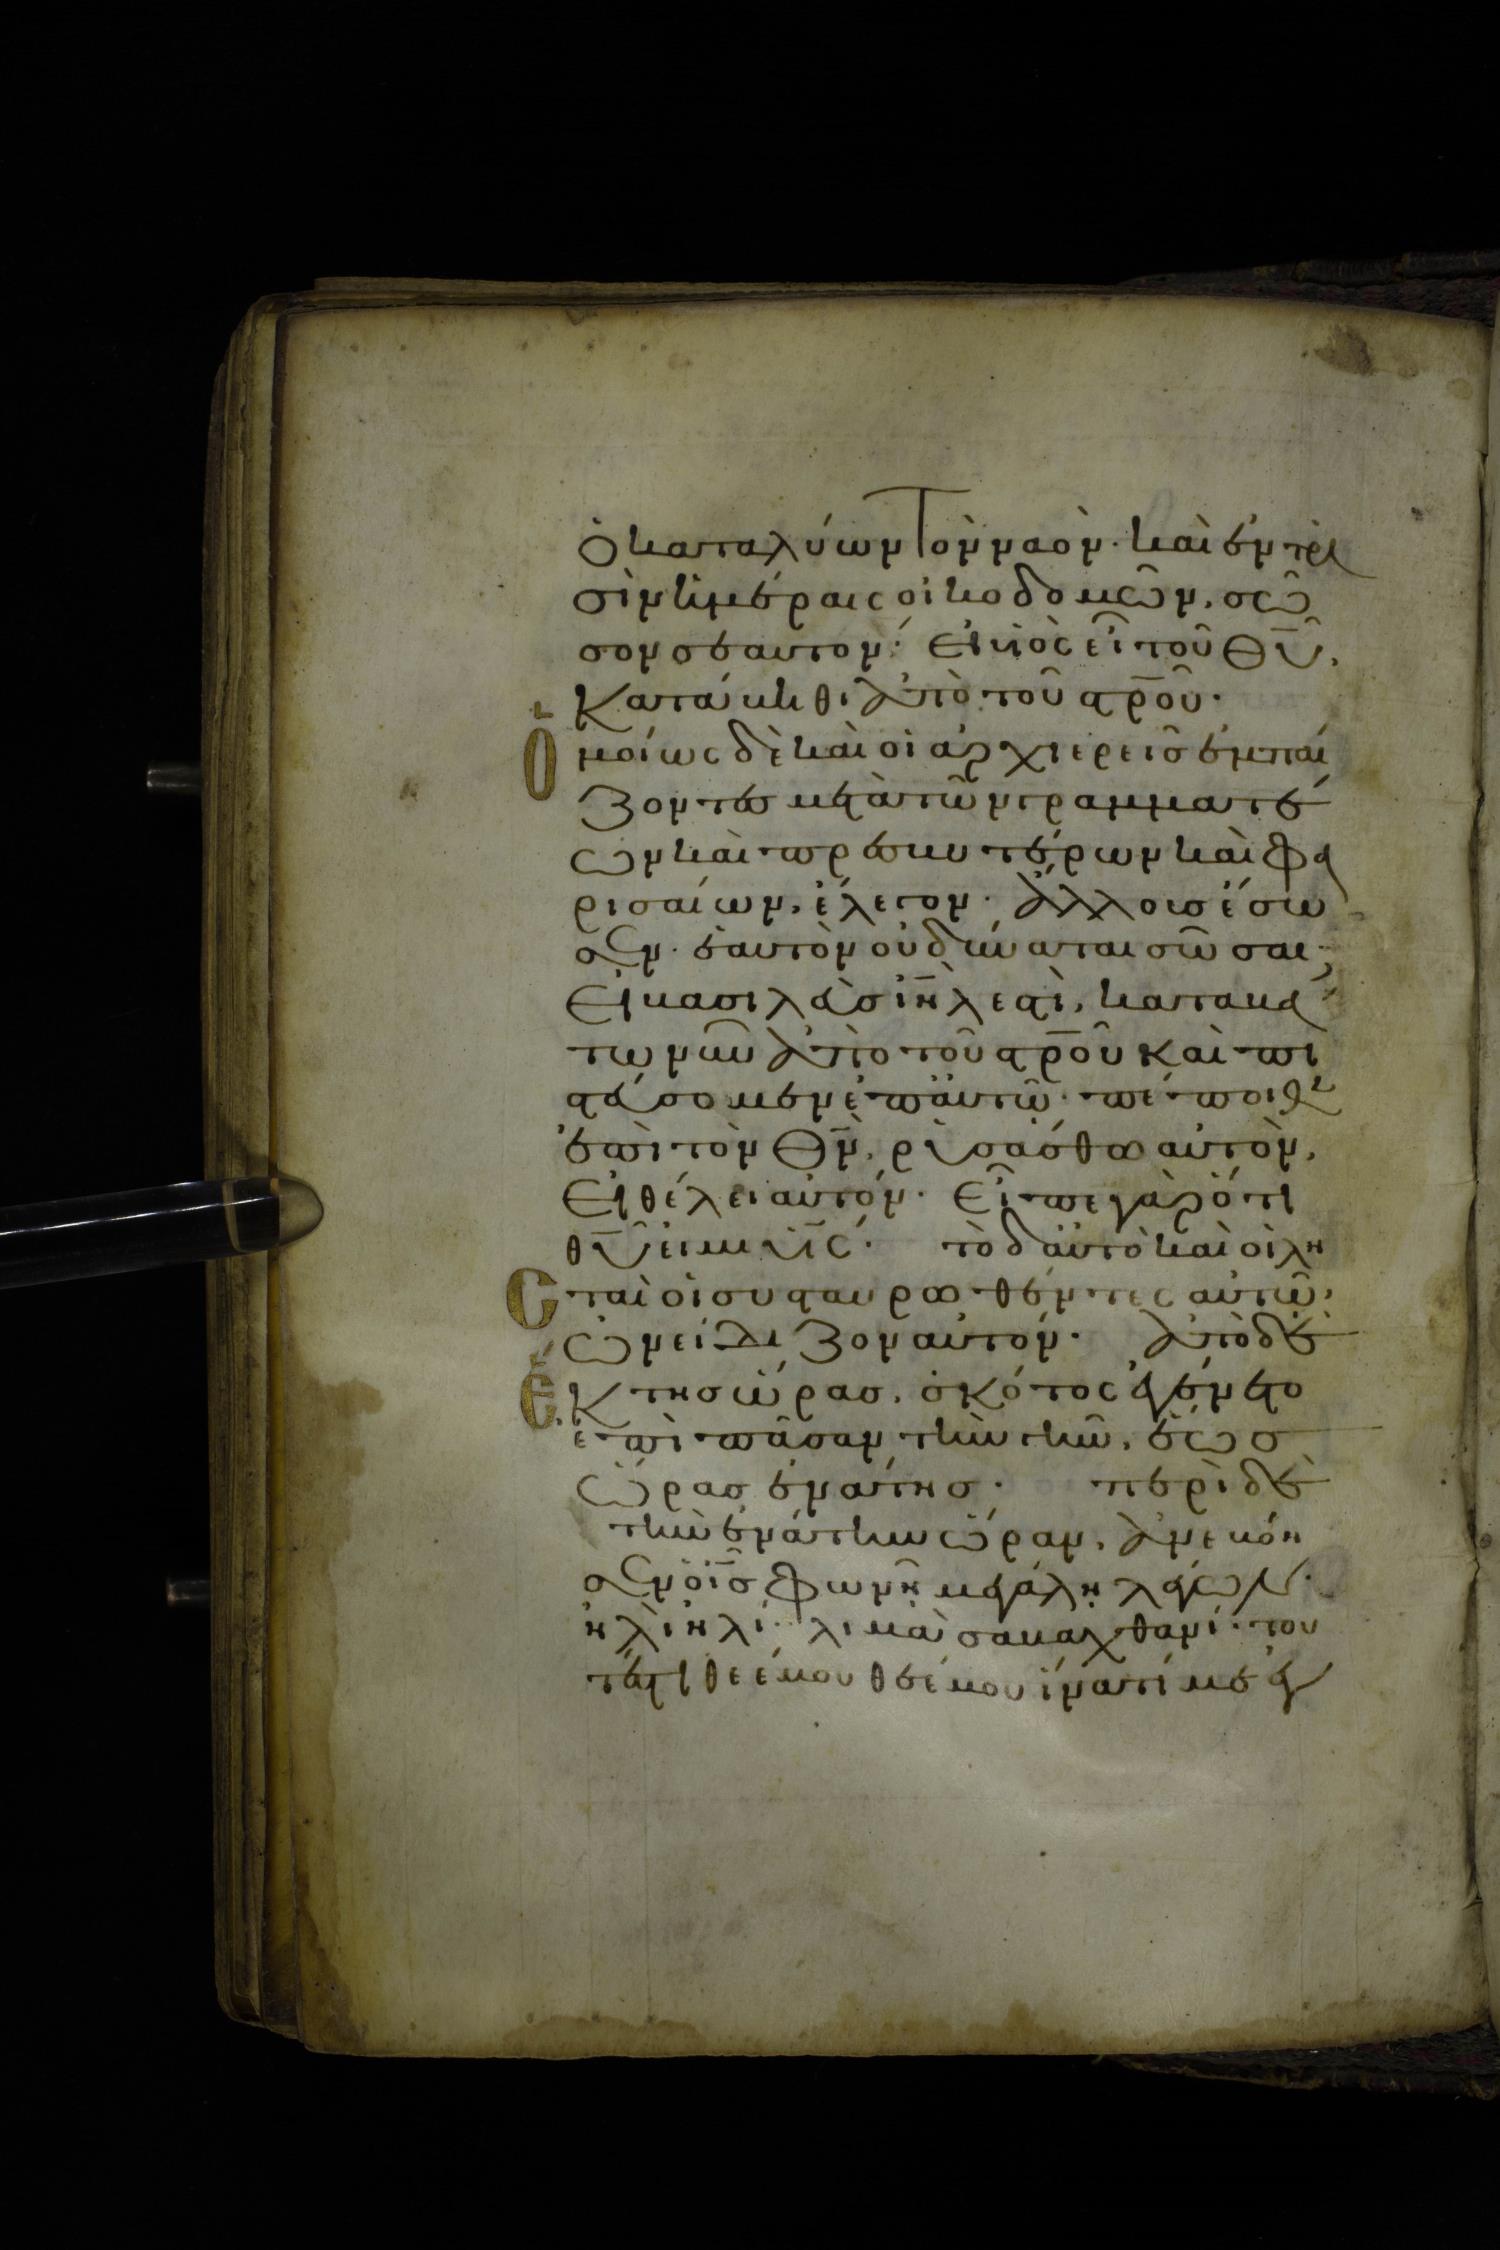 ὁ καταλύων τὸν ναὸν· καὶ ἐν τρι
σὶν ἡμέραις οἰκοδομῶν, σῶ
σον σεαυτον· εἰ υἱὸς εἶ τοῦ θ̅υ̅,
κατάβηθι ἀπὸ τοῦ στ̅ρ̅οῦ·
Ὁμοίως δὲ καὶ οἱ ἀρχιερεῖς ἐμπαί
ζοντες μετὰ τῶν γραμματέ
ων καὶ πρεσβυτέρων καὶ φα
ρισαίων, ἔλεγον· ἄλλους ἔσω
σεν· ἑαυτὸν οὐ δύναται σῶσαι·
εἰ βασιλεὺς ι̅η̅λ ἐστὶ, καταβά
τω νῦν ἀπὸ τοῦ στ̅ρ̅οῦ καὶ πι
στεύσομεν ἐπ αὐτῶ· πέποιθεν
ἐπὶ τὸν θ̅ν̅, ρυσάσθω αὐτὸν,
εἰ θέλει αὐτόν· εἶπε γὰρ ὅτι
θ̅υ̅ εἰμι υ̅ς̅· τὸ δ αὐτὸ καὶ οἱ λη
σταὶ οἱ συσταυρωθέντες αὐτῶ,
ὠνείδιζον αὐτόν· ἀπὸ δὲ
ἕκτης ὥρας, σκότος ἐγένετο
ἐπὶ πᾶσαν τὴν γῆν, ἕως
ὥρας ἐνάτης· περὶ δὲ
τὴν ἐνάτην ὥραν, ἀνεβόη
σεν ὁ ι̅ς̅ φωνῆ μεγάλη λέγων·
ἠλὶ ἠλί· λιμὰ σαβαχθανί· του
τέστι θεέ μου θεέ μου ἱνατί με ἐγ